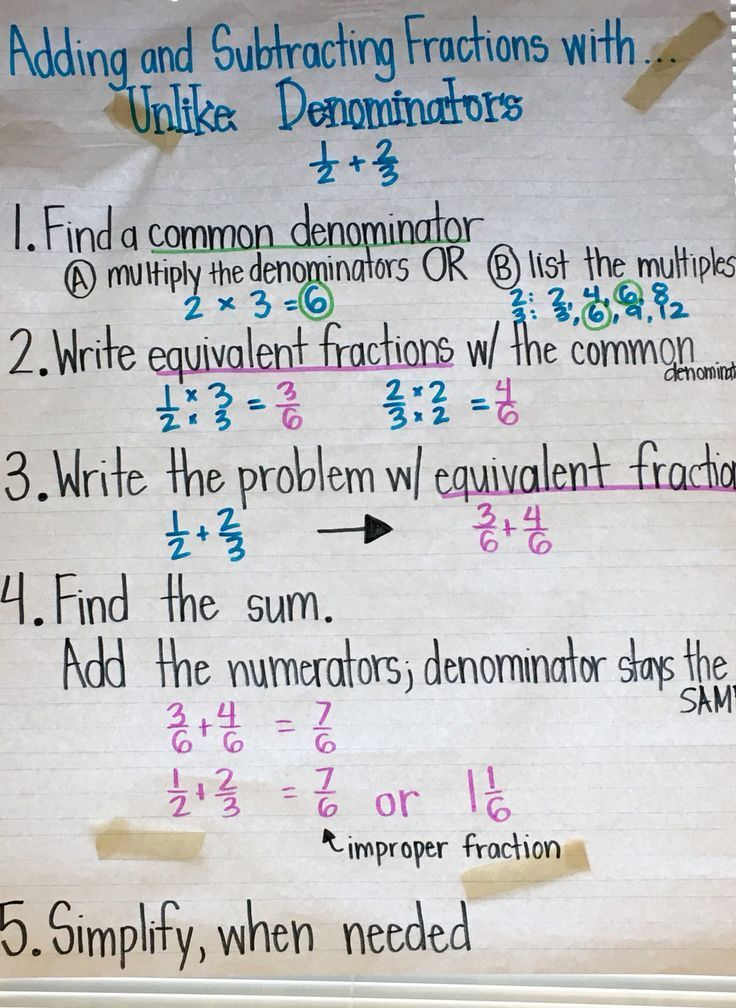 Adding and Subtracting Fractions with...
Unlike Denominators
1/2 + 2/3
1. Find a common denominator
Ⓐ multiply the denominators OR Ⓑ list the multiples
2 × 3 = 6
2: 2, 4, 6, 8
3: 3, 6, 9, 12
2. Write equivalent fractions w/ the common
denominat
1/2 × 3/3 = 3/6 2/3 × 2/2 = 4/6
3. Write the problem w/ equivalent fractio
1/2 + 2/3 → 3/6 + 4/6
4. Find the sum.
Add the numerators; denominator stays the
SAM
3/6 + 4/6 = 7/6
1/2 + 2/3 = 7/6 or 1 1/6
improper fraction
5. Simplify, when needed